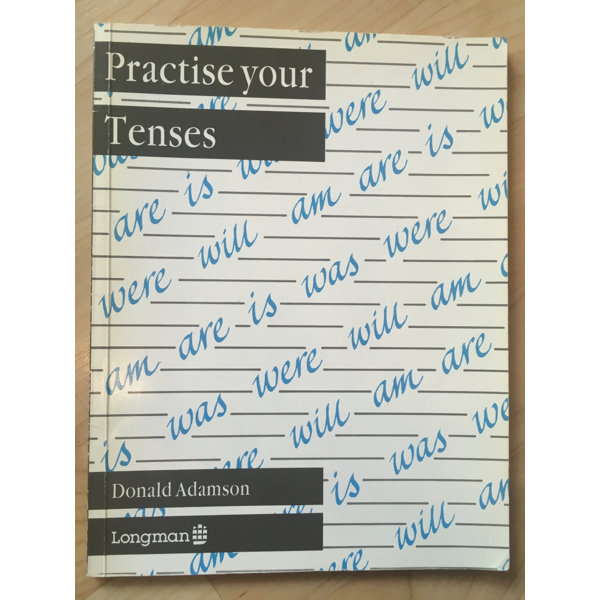 Practise your
Tenses
am
are is was were will
were will am are is w
am are is was were wi
is was were will am a
were will am are
am is was were
were will am
Donald Adamson
Longman